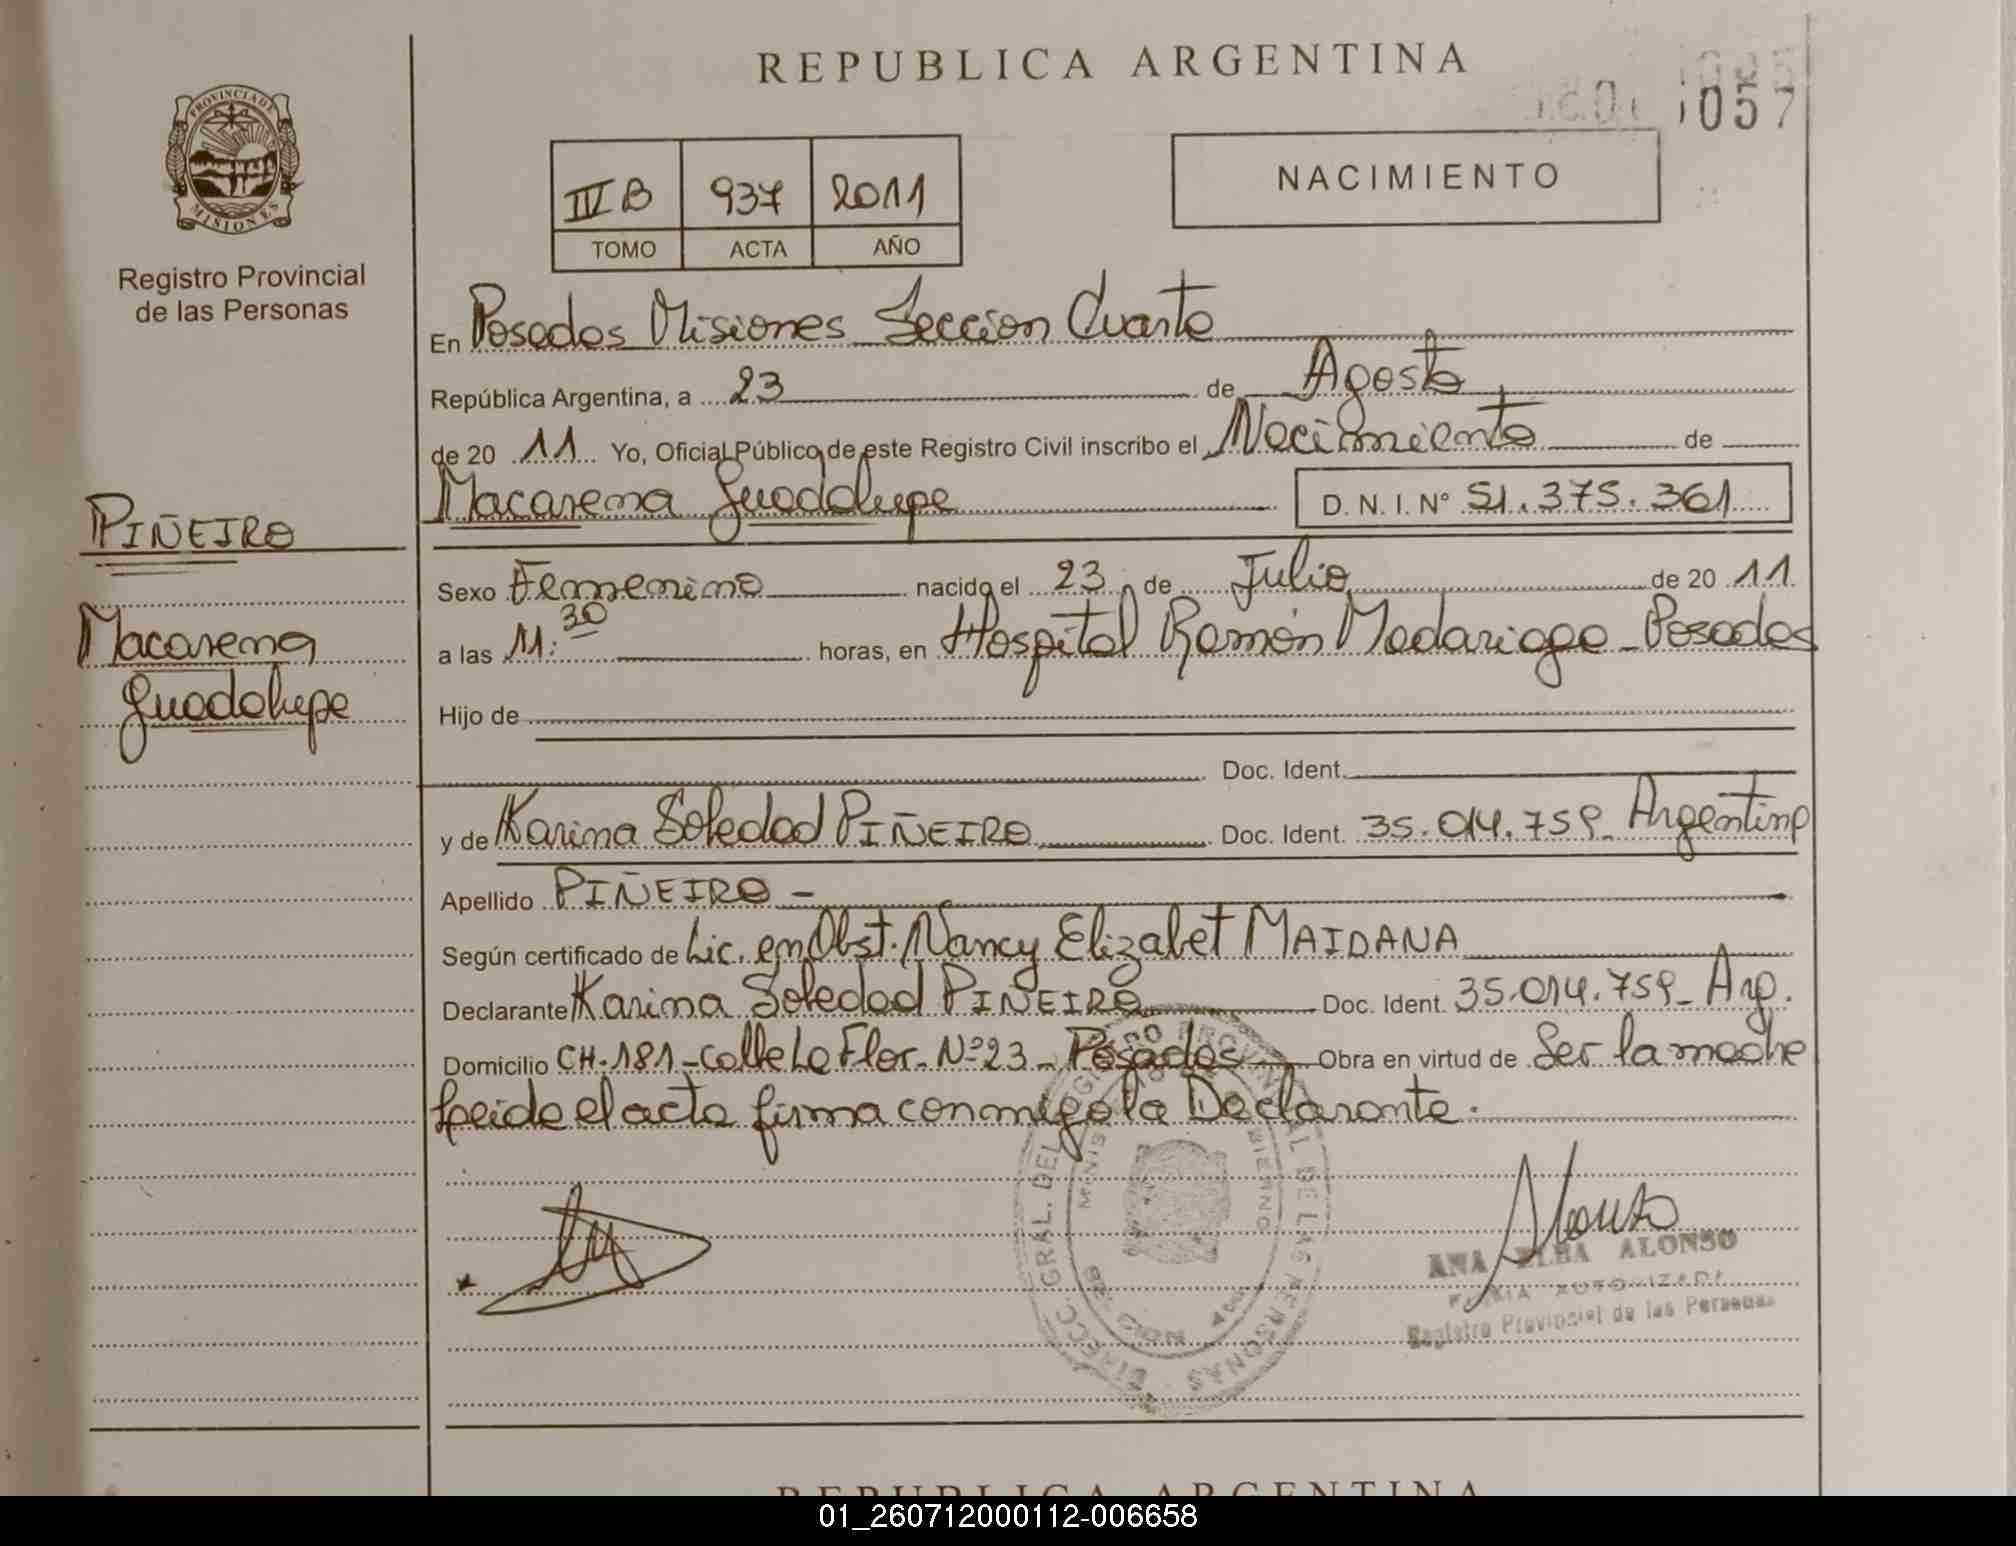 REPUBLICA ARGENTINA
057
PROVINCIA DE
MISIONES
Registro Provincial
de las Personas
III B 937 2011
TOMO ACTA AÑO
NACIMIENTO
En Posadas Misiones Seccion Cuarta
República Argentina, a 23 de Agosto
de 20 11 Yo, Oficial Público de este Registro Civil inscribo el Nacimiento de
Macarena Guadalupe D. N. I. Nº 51.375.361
PIÑEIRO
Macarena
Guadalupe
Sexo Femenino nacido el 23 de Julio de 20 11.
a las 11:30 horas, en Hospital Ramón Madariaga - Posadas
Hijo de
Doc. Ident.
y de Karina Soledad PIÑEIRO Doc. Ident. 35.014.759_ Argentina
Apellido PIÑEIRO -
Según certificado de Lic. en Obst. Nancy Elizabet MAIDANA
Declarante Karina Soledad PIÑEIRO Doc. Ident. 35.014.759_ Arg.
Domicilio CH.181-calle La Flor. Nº 23 - Posadas Obra en virtud de Ser la madre
Leida el acta firma conmigo la Declarante.
DIRECC. GRAL. DEL REGISTRO PROVINCIAL DE LAS PERSONAS
ANA ELBA ALONSO
FIRMA AUTORIZADA
Registro Provincial de las Personas
REPUBLICA ARGENTINA
01_260712000112-006658